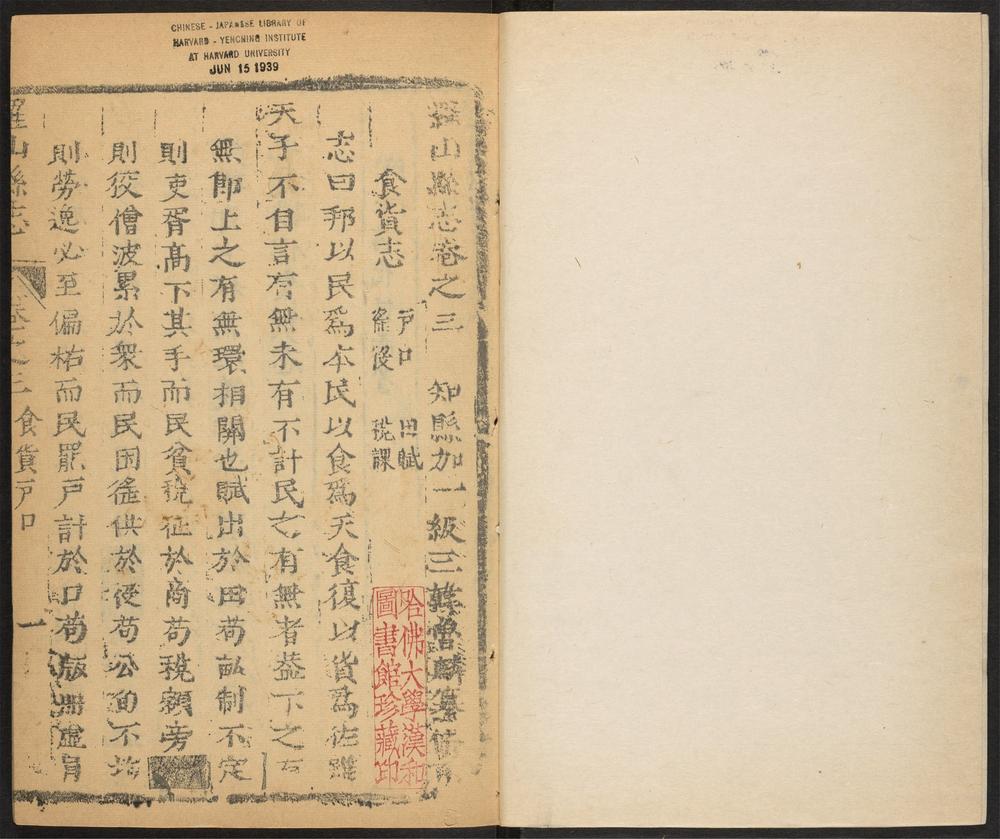 CHINESE - JAPANESE LIBRARY OF
HARVARD - YENCHING INSTITUTE
AT HARVARD UNIVERSITY
JUN 15 1939
羅山縣志卷之三 知縣加一級三韓魯麟纂脩
食貨志 戶口 田賦 徭役 稅課
志曰邦以民爲本民以食爲天食復以貨爲佐雖
天子不自言有無未有不計民之有無者蓋下之有
無卽上之有無環相關也賦出於田苟畝制不定
則吏胥高下其手而民貧稅征於商苟稅額旁
則狡僧波累於衆而民困徭供於役苟公甸不均
則勞逸必至偏枯而民罷戶計於口苟版冊虛
羅山縣志 卷之三 食貨戶口 一
哈佛大學漢和
圖書館珍藏印